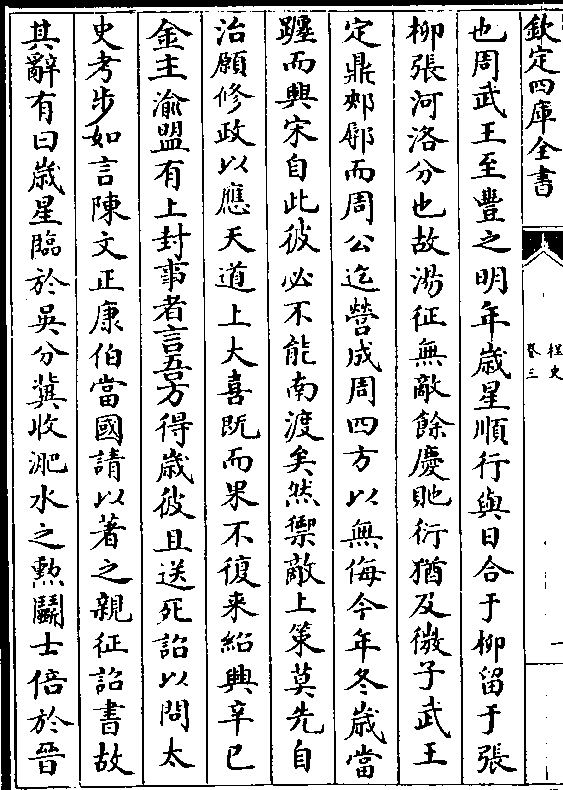 欽定四庫全書
桯史
卷三
也周武王至豐之明年歲星順行與日合于柳留于張
柳張河洛分也故湯征無敵餘慶貤衍猶及微子武王
定鼎郟鄏而周公迄營成周四方以無侮今年冬歲當
躔而興宋自此彼必不能南渡矣然禦敵上策莫先自
治願修政以應天道上大喜既而果不復来紹興辛巳
金主渝盟有上封事者言吾方得歲彼且送死詔以問太
史考步如言陳文正康伯當國請以著之親征詔書故
其辭有曰歲星臨於吳分冀收淝水之勲鬭士倍於晉